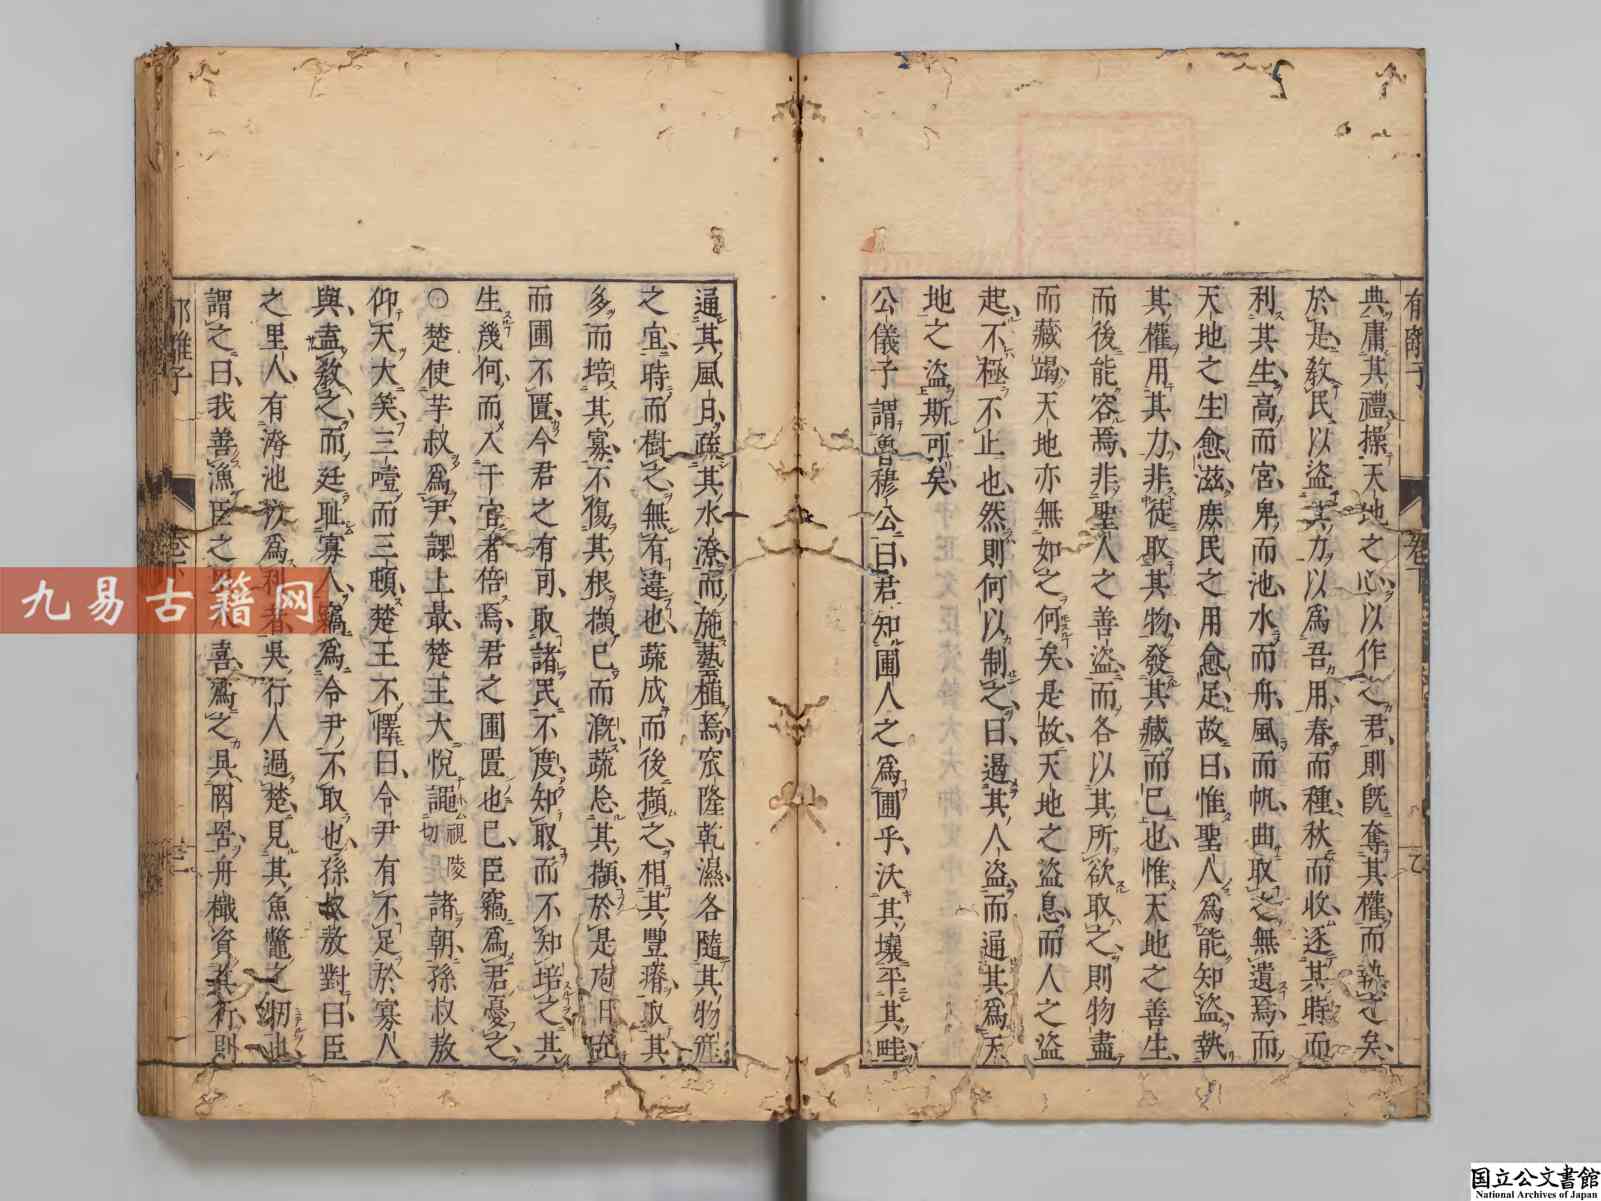 典庸其禮操天地之心以作之君則既奪其權而執之矣
於是教民以盜其力以爲吾用春而種秋而收逐其時而
利其生高而宮卑而池水而舟風而帆曲取之無遺焉而
天地之生愈滋庶民之用愈足故曰惟聖人爲能知盜執
其權用其力非徒取其物發其藏而已也惟天地之善生
而後能容焉非聖人之善盜而各以其所欲取之則物盡
而藏竭天地亦無如之何矣是故天地之盜息而人之盜
起不極不止也然則何以制之曰遏其人盜而通其爲天
地之盜斯可矣
公儀子謂魯穆公曰君知圃人之爲圃乎沃其壤平其畦
通其風日疏其水潦而施藝植焉窊隆乾濕各隨其物產
之宜時而樹之無有違也蔬成而後擷之相其豐瘠取其
多而培其寡不傷其根擷已而溉蔬忘其擷於是庖日充
而圃不匱今君之有司取諸民不度知取而不知培之其
生幾何而入于官者倍焉君之圃匱也已臣竊爲君憂之
○楚使芋叔爲尹課上最楚王大悅譝視陵切諸朝孫叔敖
仰天大笑三噎而三頓楚王不懌曰令尹有不足於寡人
與盍教之而廷耻寡人竊爲令尹不取也孫叔敖對曰臣
之里人有濟池以爲利者吳行人過楚見其魚鱉之牣也
謂之曰我善漁臣之里人喜爲之具罔罟舟檝資其行則
郁離子
卷下
九易古籍网
国立公文書館
National Archives of Japan